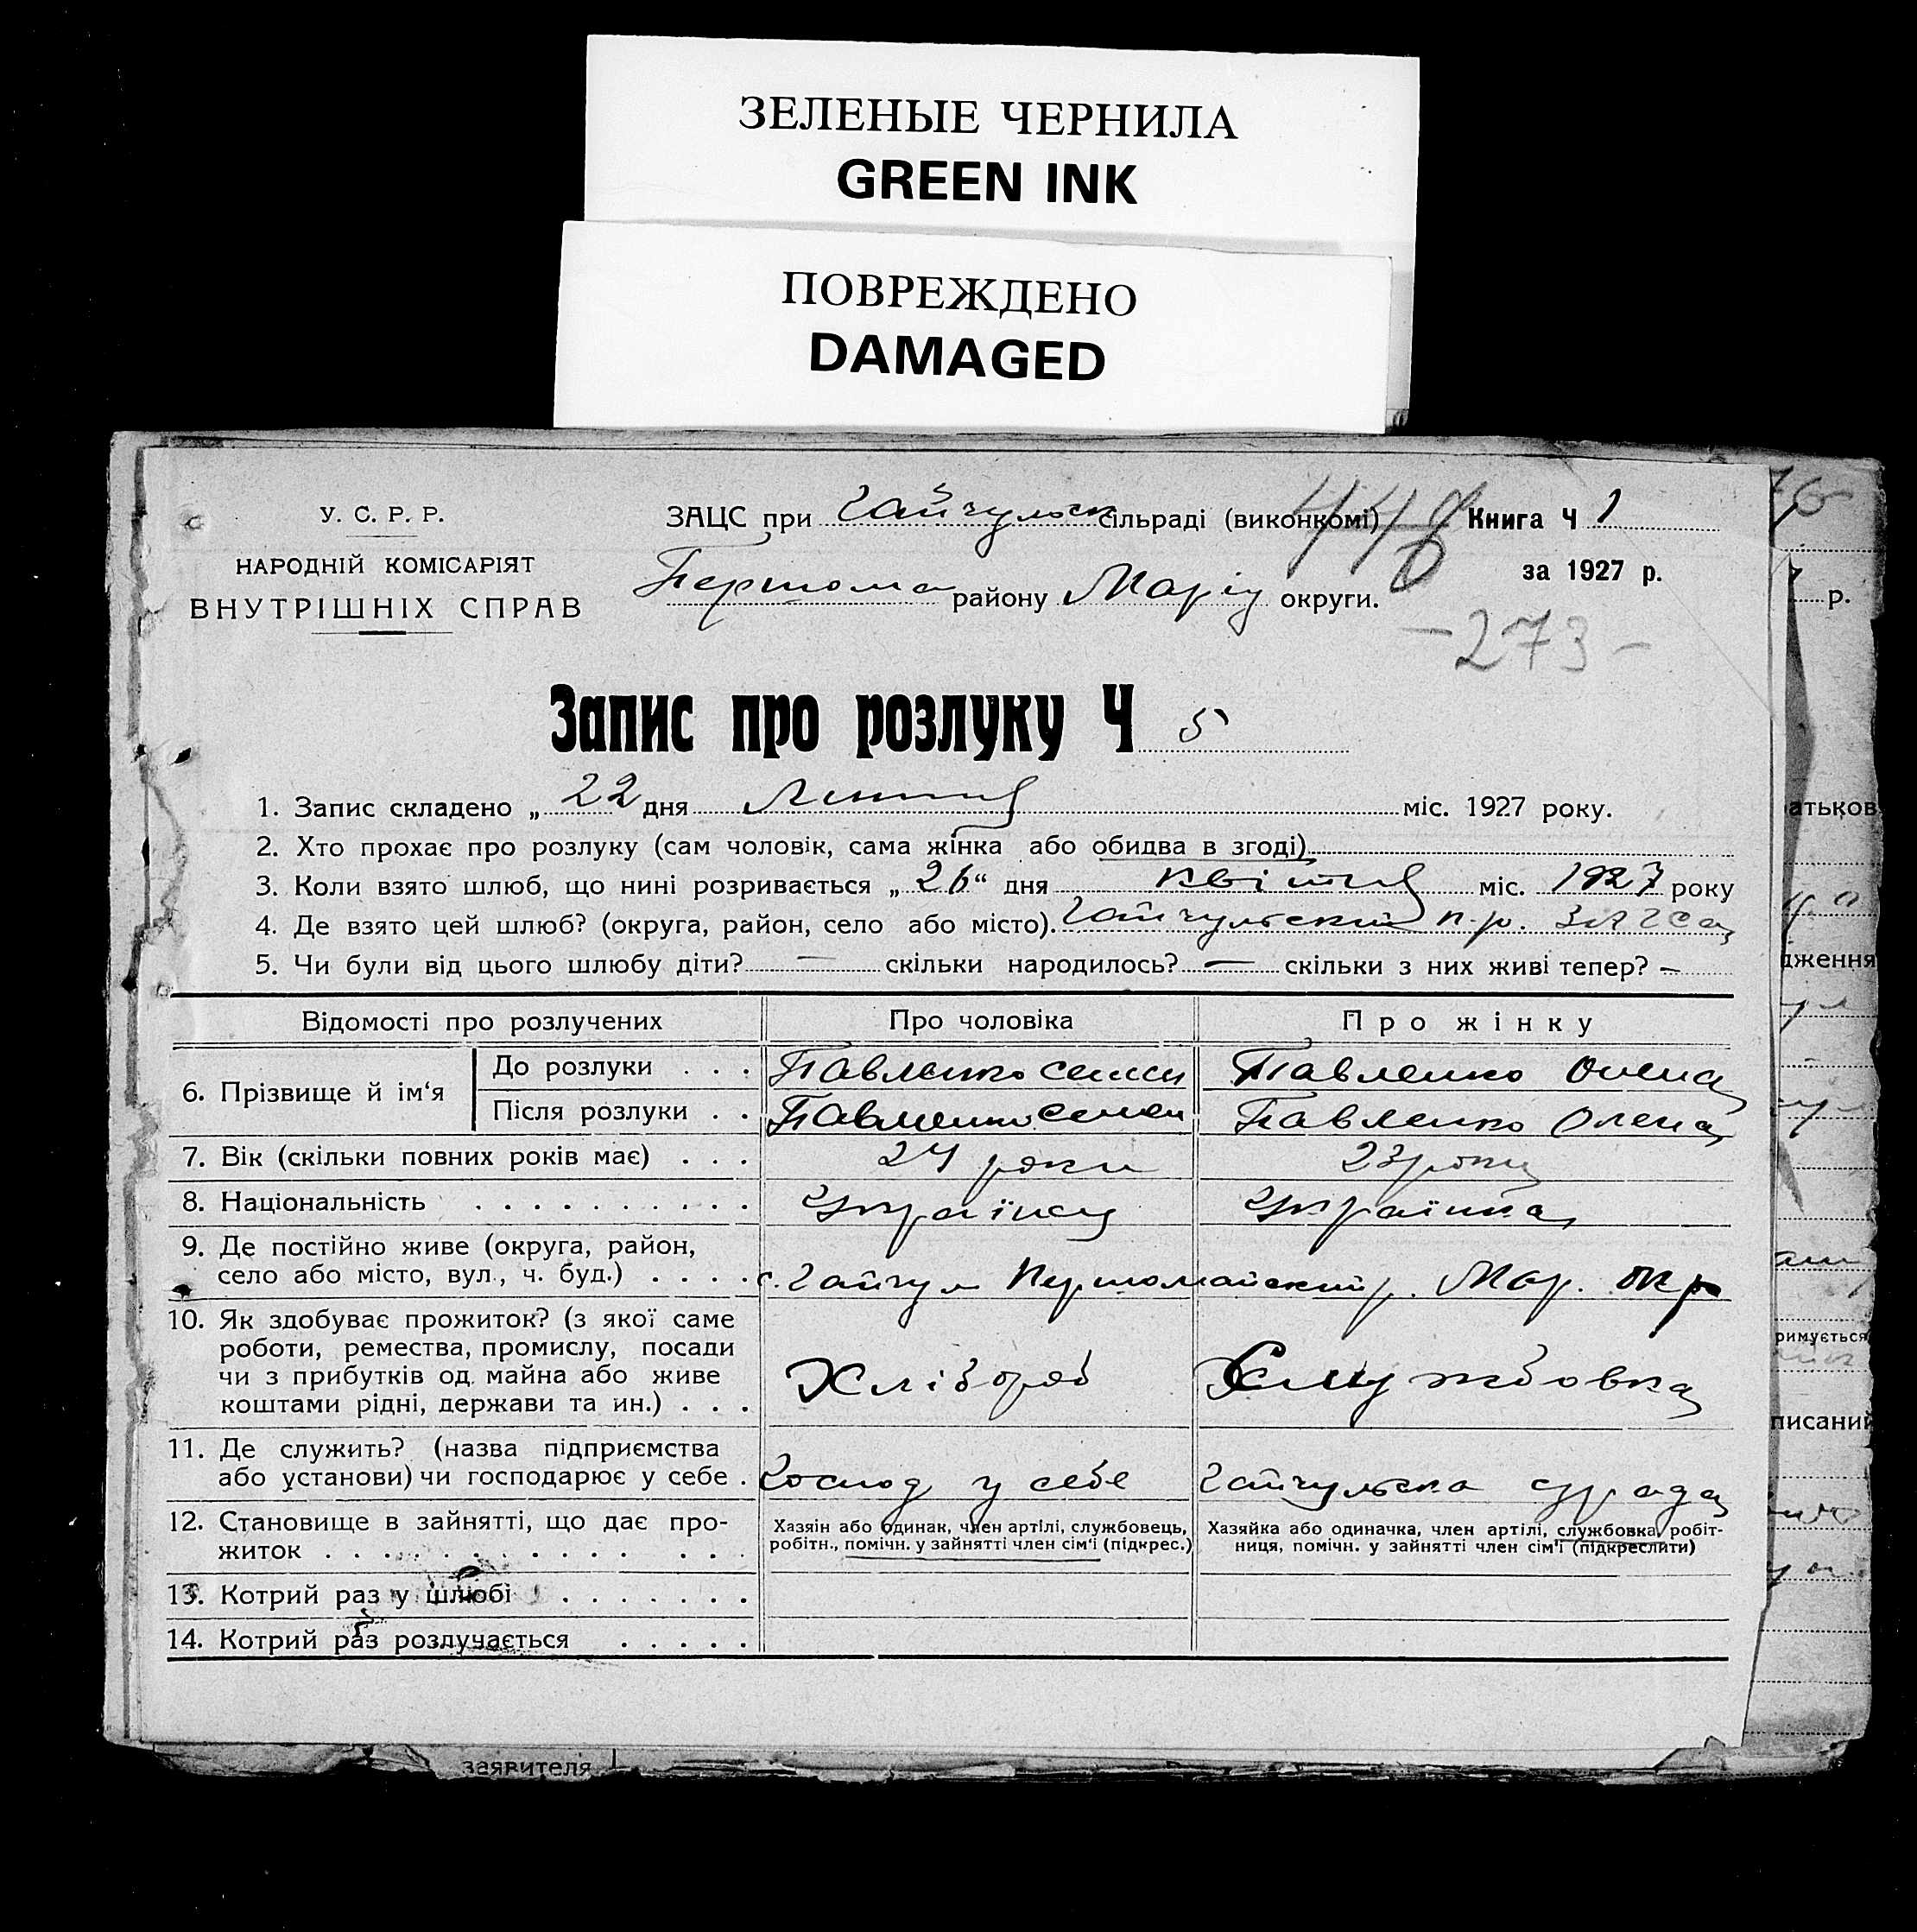 ЗЕЛЕНЫЕ ЧЕРНИЛА
GREEN INK
ПОВРЕЖДЕНО
DAMAGED
У. С. Р. Р.
НАРОДНІЙ КОМІСАРІЯТ
ВНУТРІШНІХ СПРАВ
ЗАЦС при Гайчульск сільраді (виконкомі)
Першома району Маріу округи.
Книга Ч 1
за 1927 р.
-273-
Запис про розлуку Ч 5
1. Запис складено „ 22 дня Липня міс. 1927 року.
2. Хто прохає про розлуку (сам чоловік, сама жінка або обидва в згоді)
3. Коли взято шлюб, що нині розривається „ 26 “ дня квітня міс. 1927 року
4. Де взято цей шлюб? (округа, район, село або місто). Гайчульский п.р. ЗАГСа
5. Чи були від цього шлюбу діти? — скільки народилось? — скільки з них живі тепер? —
Відомості про розлучених Про чоловіка Про жінку
6. Прізвище й ім‘я До розлуки . . . Павленко Семен Павленко Олена
Після розлуки . . Павленко Семен Павленко Олена
7. Вік (скільки повних років має) . . . 24 роки 23 роки
8. Національність . . . . . . . . . . Українец Українка
9. Де постійно живе (округа, район,
село або місто, вул., ч. буд.) . . . . с. Гайчул Першомайский р. Мар. окр
10. Як здобуває прожиток? (з якої саме
роботи, ремества, промислу, посади
чи з прибутків од майна або живе
коштами рідні, держави та ин.) . . . Хлібороб Службовка
11. Де служить? (назва підприємства
або установи) чи господарює у себе . Господ у себе Гайчульска с/рада
12. Становище в зайнятті, що дає про-
житок . . . . . . . . . . . . .
Хазяін або одинак, член артілі, службовець,
робітн., помічн. у зайнятті член сім‘ї (підкрес.)
Хазяйка або одиначка, член артілі, службовка, робіт-
ниця, помічн. у зайнятті член сім‘ї (підкреслити)
13. Котрий раз у шлюбі . . . . . . .
14. Котрий раз розлучається . . . . .
р.
дження
римується
писаний
заявителя